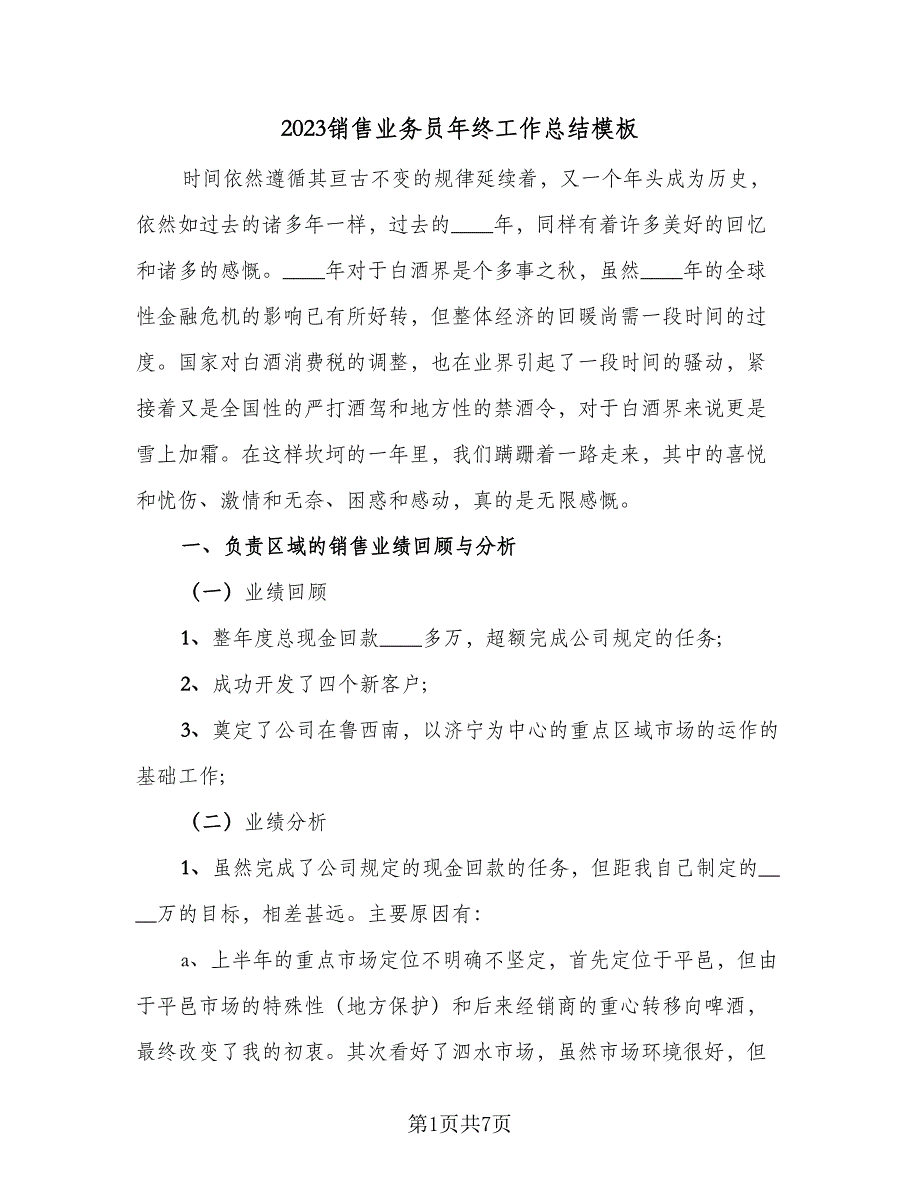 2023销售业务员年终工作总结模板
时间依然遵循其亘古不变的规律延续着，又一个年头成为历史，
依然如过去的诸多年一样，过去的____年，同样有着许多美好的回忆
和诸多的感慨。____年对于白酒界是个多事之秋，虽然____年的全球
性金融危机的影响已有所好转，但整体经济的回暖尚需一段时间的过
度。国家对白酒消费税的调整，也在业界引起了一段时间的骚动，紧
接着又是全国性的严打酒驾和地方性的禁酒令，对于白酒界来说更是
雪上加霜。在这样坎坷的一年里，我们蹒跚着一路走来，其中的喜悦
和忧伤、激情和无奈、困惑和感动，真的是无限感慨。
一、负责区域的销售业绩回顾与分析
（一）业绩回顾
1、整年度总现金回款____多万，超额完成公司规定的任务;
2、成功开发了四个新客户;
3、奠定了公司在鲁西南，以济宁为中心的重点区域市场的运作的
基础工作;
（二）业绩分析
1、虽然完成了公司规定的现金回款的任务，但距我自己制定的__
__万的目标，相差甚远。主要原因有：
a、上半年的重点市场定位不明确不坚定，首先定位于平邑，但由
于平邑市场的特殊性（地方保护）和后来经销商的重心转移向啤酒，
最终改变了我的初衷。其次看好了泗水市场，虽然市场环境很好，但
第1页共7页